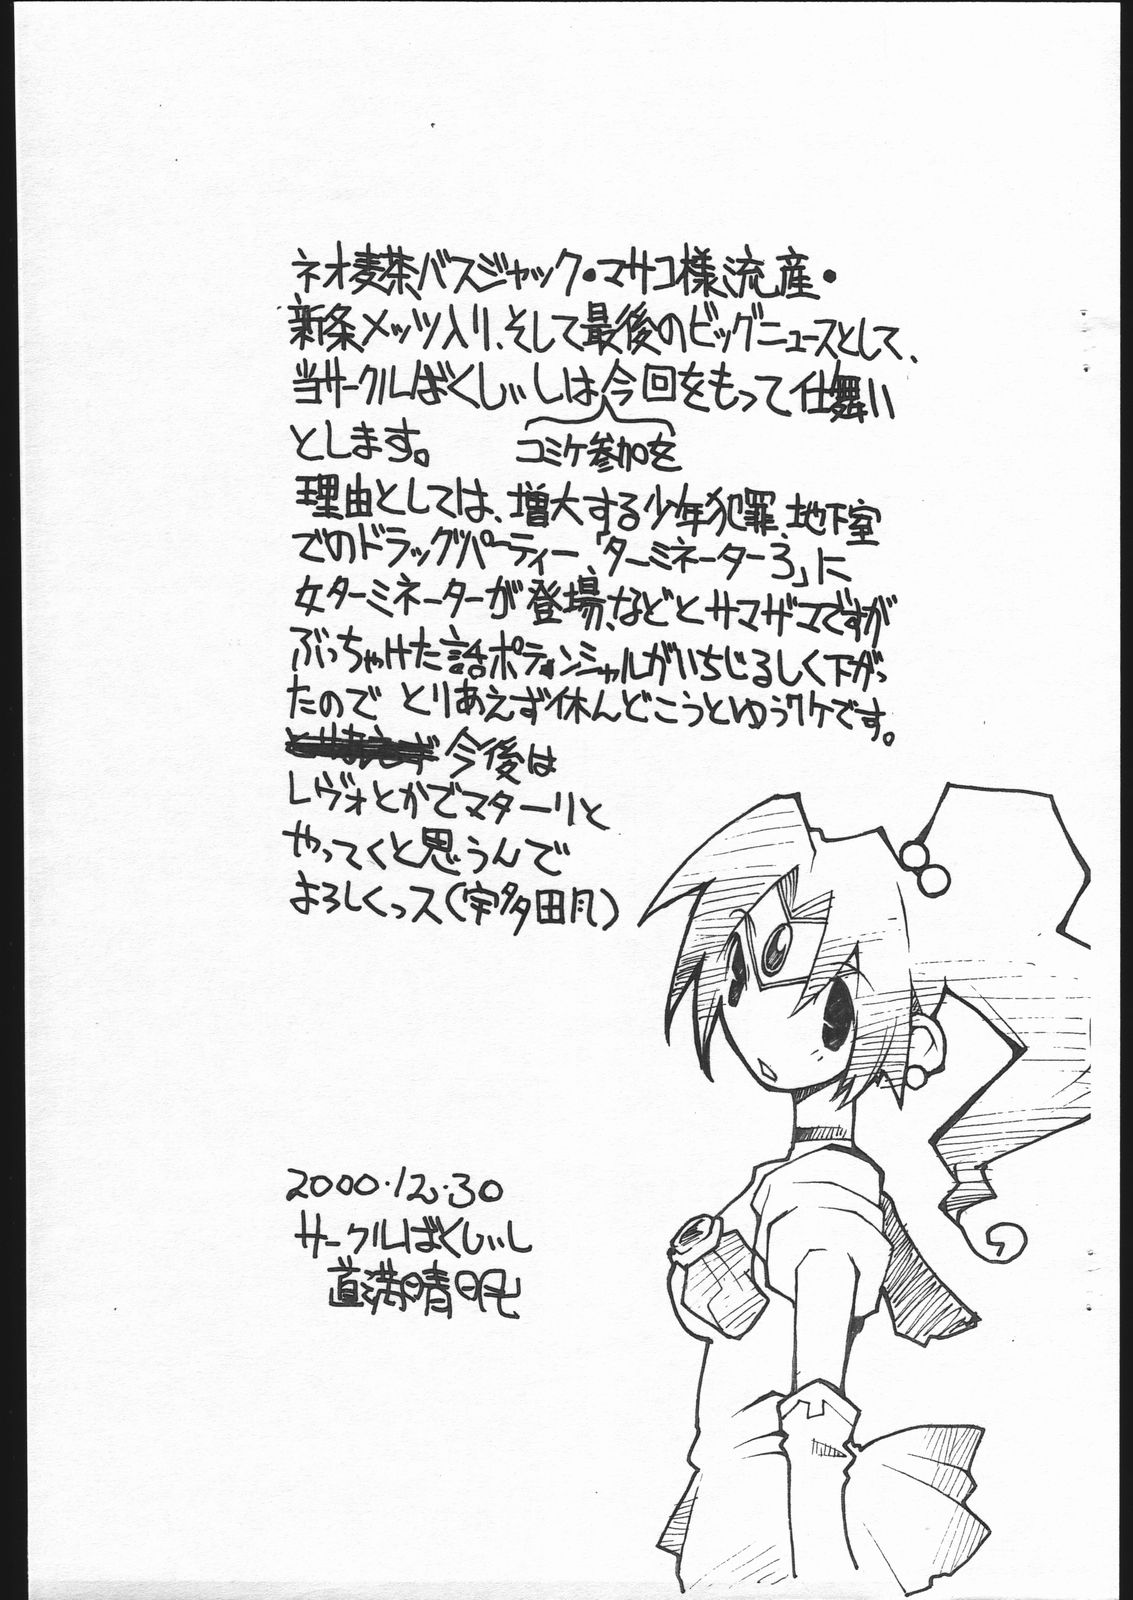 ネオ麦茶バスジャック・マサコ様流産・
新条メッツ入り、そして最後のビッグニュースとして、
当サークルばくしぃしは今回をもって仕舞い
とします。
コミケ参加を
理由としては、増大する少年犯罪、地下室
でのドラッグパーティー「ターミネーター3」に
女ターミネーターが登場、などとサマザマですが
ぶっちゃけた話ポテンシャルがいちじるしく下がっ
たので とりあえず休んどこうとゆうワケです。
今後は
レヴォとかでマターリと
やってくと思うんで
よろしくっス(宇多田凡)
2000.12.30
サークルばくしぃし
道満晴明